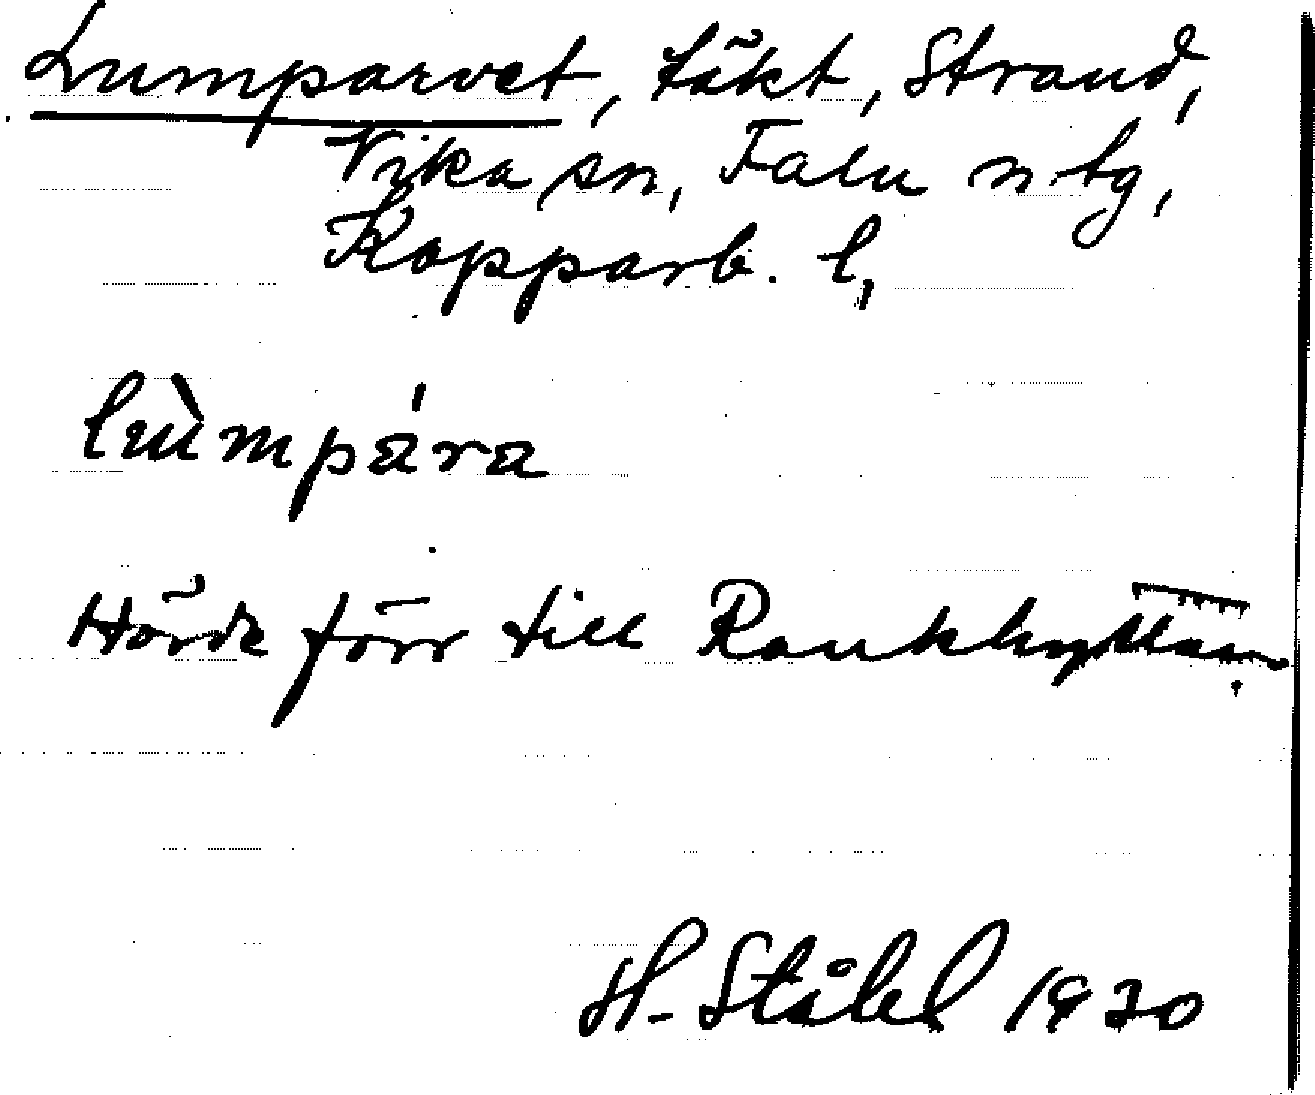 Lumparvet, täkt, Strand,
Vika sn, Falu n tg,
Kopparb. l,
lùmpára
Hörde förr till Rankhyttan.
H. Ståhl 1930